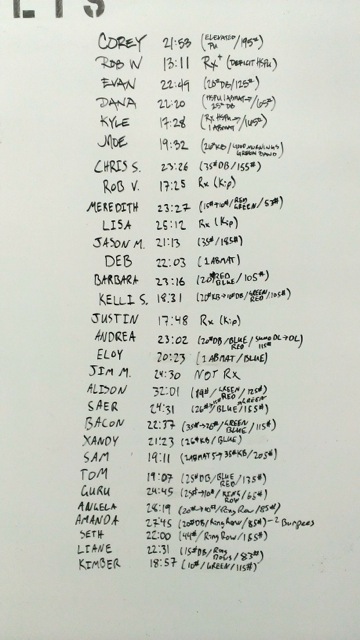 COREY 21:53 (ELEVATED PU/195#)
ROB W 13:11 Rx+ (DEFICIT HSPU)
EVAN 22:49 (20#DB/125#)
DANA 22:20 (HSPU 1 ABMAT→25#DB/65#)
KYLE 17:28 (Rx HSPU→1 ABMAT/165#)
MOE 19:32 (20#KB/GOOD MORNINGS GREEN BAND)
CHRIS S. 23:26 (35#DB/155#)
ROB V. 17:25 Rx (Kip)
MEREDITH 23:27 (15#→10#/RED GREEN/57#)
LISA 25:12 Rx (Kip)
JASON M. 21:13 (35#/185#)
DEB 22:03 (1 ABMAT)
BARBARA 23:16 (20#RED BLUE/105#)
KELLI S. 18:31 (20#KB→10#DB/GREEN RED/105#)
JUSTIN 17:48 Rx (Kip)
ANDREA 23:02 (20#DB/BLUE RED/SUMO DL→DL 115#)
ELOY 20:23 (1 ABMAT/BLUE)
JIM M. 24:30 NOT Rx
ALISON 32:01 (/GREEN RED/125#)
SAER 24:31 (26#/BLUE/155#)
BACON 22:37 (35#→26#/GREEN BLUE/115#)
XANDY 21:23 (26#KB/BLUE)
SAM 19:11 (2 ABMATS→35#KB/205#)
TOM 19:07 (25#DB/BLUE RED/135#)
GURU 24:45 (25#→10#/RING ROW/65#)
ANGELA 28:19 (20#→10#/Ring Row/85#)
AMANDA 27:45 (20#DB/Ring Row/85#)-2 Burpees
SETH 22:00 (44#/Ring Row/155#)
LIANE 22:31 (15#DB/Ring Rows/83#)
KIMBER 18:57 (10#/GREEN/115#)